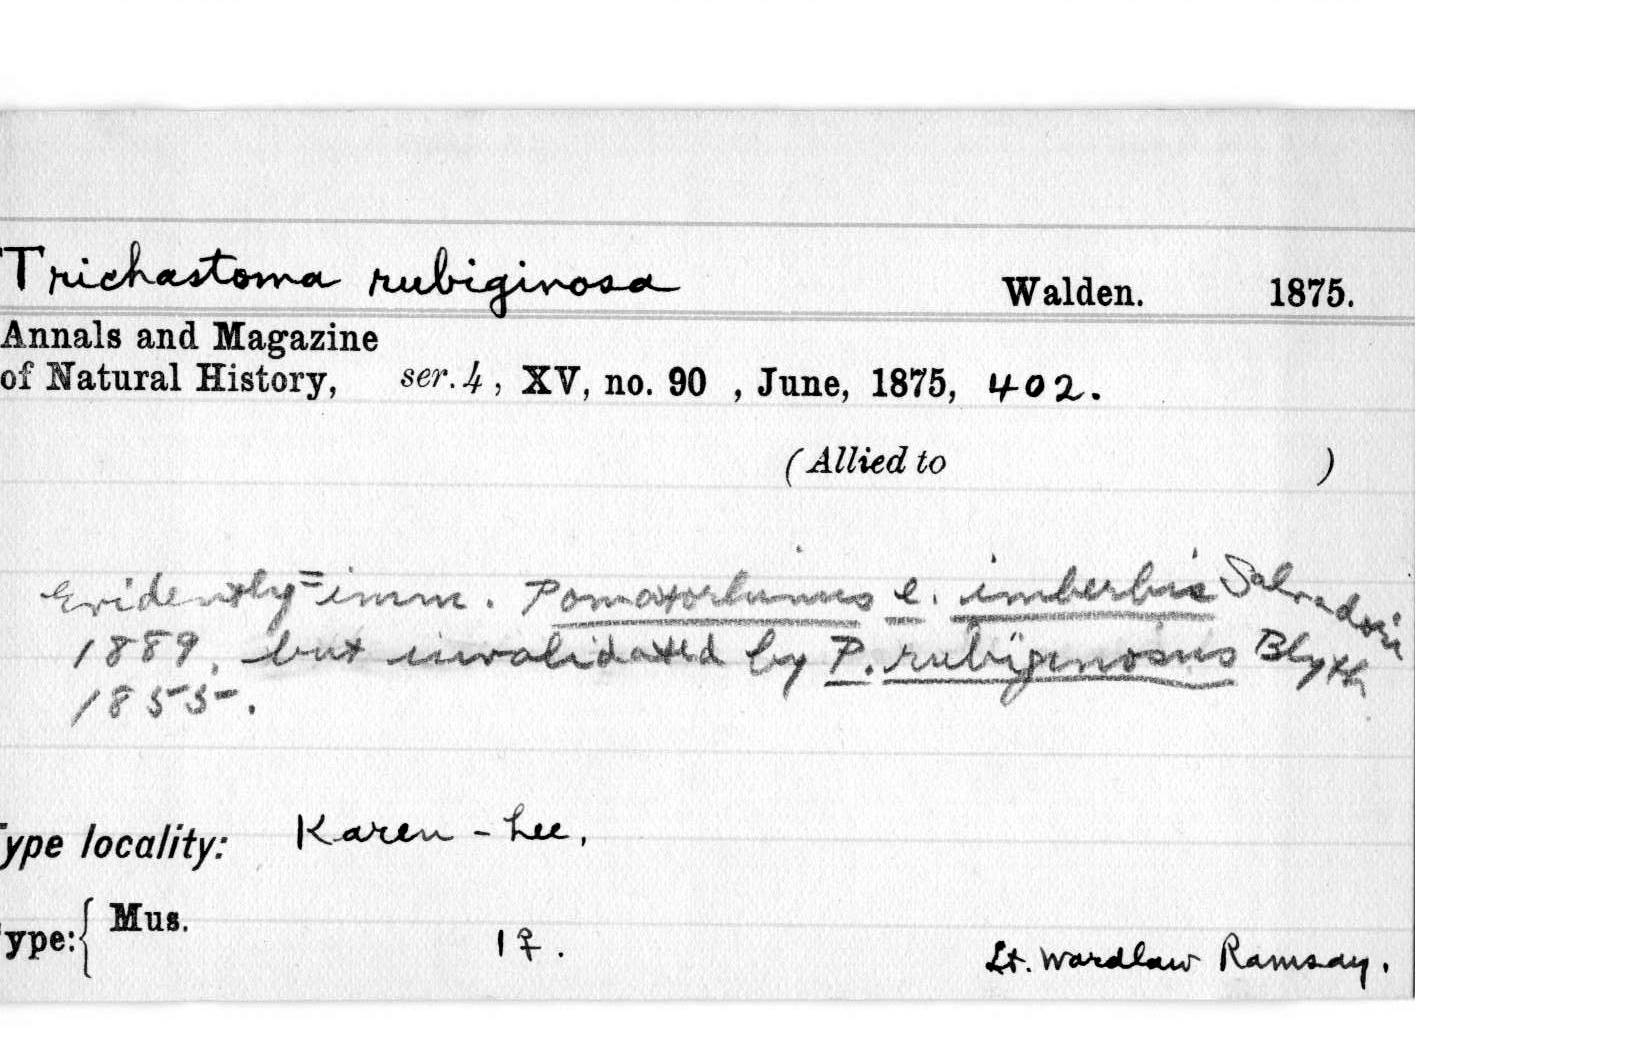 Trichastoma rubiginosa Walden. 1875.
Annals and Magazine
of Natural History, ser. 4, XV, no. 90 , June, 1875, 402.
(Allied to )
Evidently = imm. Pomatorhinus e. imberbis Salvadori
1889, but invalidated by P. rubiginosus Blyth
1855.
Type locality: Karen-hee,
ype: { Mus. 1 ♀. Lt. Wardlaw Ramsay.